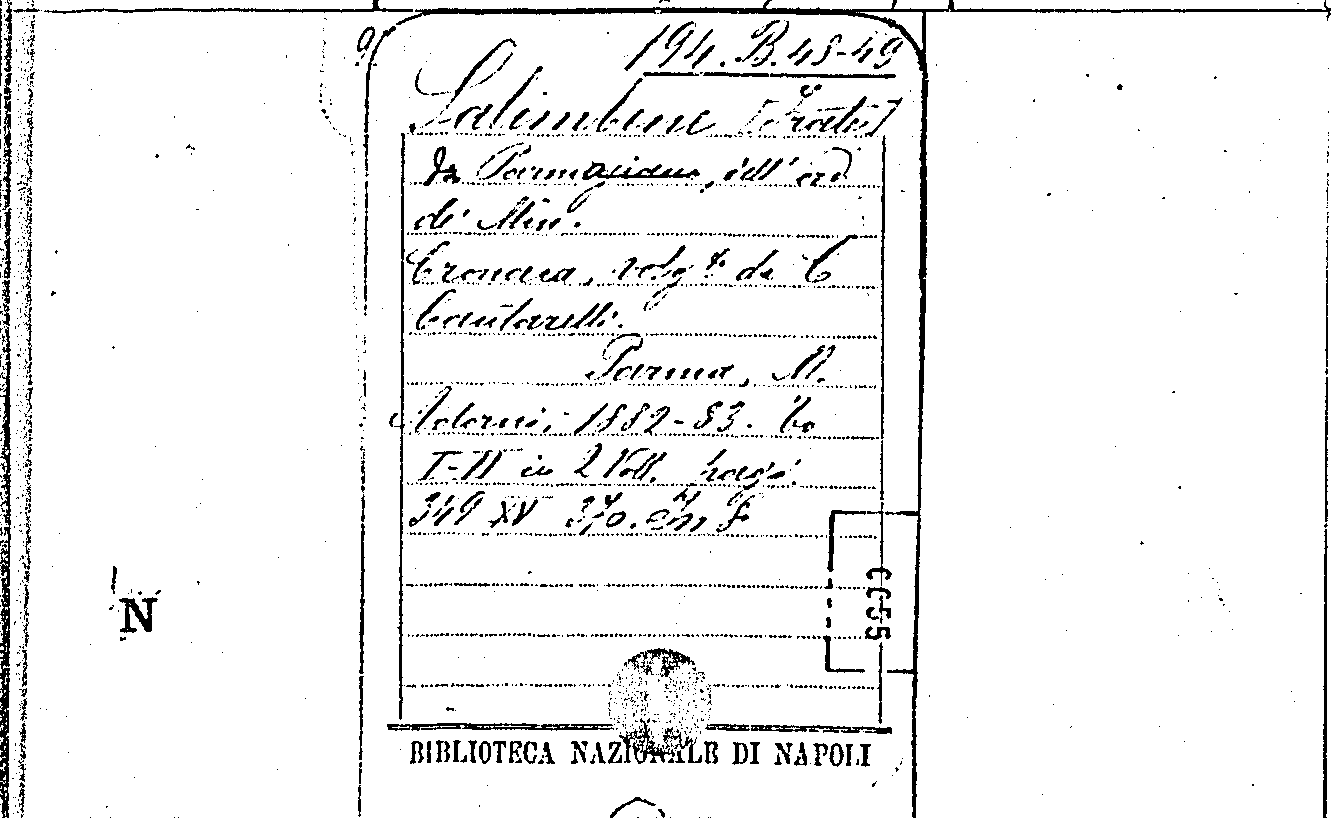 194.B.48-49
Salimbene [Frate]
da Parmigiano, dell' ord
di Min.
Cronaca, volgta da C
Cantarelli.
Parma, M.
Adorni, 1882-83. To
I-II in 2 Voll. pagg.
349 XV 370. in 8
N
BIBLIOTECA NAZIONALE DI NAPOLI